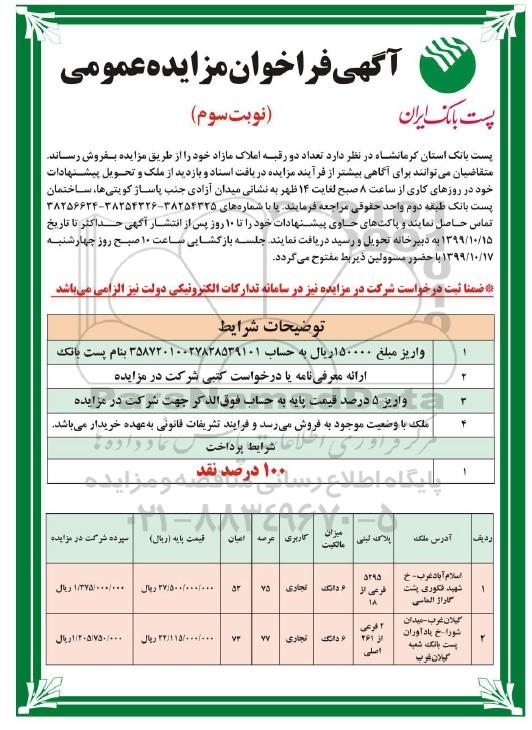 آگهی فراخوان مزایده عمومی
(نوبت سوم)
پست بانک ایران
پست بانک استان کرمانشاه در نظر دارد تعداد دو رقبه املاک مازاد خود را از طریق مزایده بفروش رساند.
متقاضیان می‌توانند برای آگاهی بیشتر از فرآیند مزایده دریافت اسناد و بازدید از ملک و تحویل پیشنهادات
خود در روزهای کاری از ساعت ۸ صبح لغایت ۱۴ ظهر به نشانی میدان آزادی جنب پاساژ کویتی‌ها، ساختمان
پست بانک طبقه دوم واحد حقوقی مراجعه فرمایند. یا با شماره‌های ۳۸۲۵۴۳۲۵-۳۸۲۵۴۳۲۶-۳۸۲۵۶۶۲۴
تماس حاصل نمایند و پاکت‌های حاوی پیشنهادات خود را تا ۱۰ روز پس از انتشار آگهی حداکثر تا تاریخ
۱۳۹۹/۱۰/۱۵ به دبیرخانه تحویل و رسید دریافت نمایند. جلسه بازگشایی ساعت ۱۰ صبح روز چهارشنبه
۱۳۹۹/۱۰/۱۷ با حضور مسوولین ذیربط مفتوح می‌گردد.
*ضمنا ثبت درخواست شرکت در مزایده نیز در سامانه تدارکات الکترونیکی دولت نیز الزامی می‌باشد
توضیحات شرایط
۱ واریز مبلغ ۱۵۰۰۰۰ ریال به حساب ۳۵۸۷۲۰۱۰۰۲۷۸۲۸۵۳۹۱۰۱ بنام پست بانک
۲ ارائه معرفی‌نامه یا درخواست کتبی شرکت در مزایده
۳ واریز ۵ درصد قیمت پایه به حساب فوق‌الذکر جهت شرکت در مزایده
۴ ملک با وضعیت موجود به فروش می‌رسد و فرایند تشریفات قانونی به‌عهده خریدار می‌باشد.
شرایط پرداخت
۱ ۱۰۰ درصد نقد
پایگاه اطلاع رسانی مناقصه و مزایده
۰۲۱-۸۸۳۴۹۶۷۰-۵
ردیف آدرس ملک پلاک ثبتی میزان مالکیت کاربری عرصه اعیان قیمت پایه (ریال) سپرده شرکت در مزایده
۱ اسلام‌آبادغرب- خ شهید فکوری پشت گاراژ الماسی ۵۲۹۵ فرعی از ۱۸ ۶ دانگ تجاری ۷۵ ۵۲ ۲۷/۵۰۰/۰۰۰/۰۰۰ ریال ۱/۳۷۵/۰۰۰/۰۰۰ ریال
۲ گیلان‌غرب-میدان شورا-خ یادآوران پست بانک شعبه گیلان‌غرب ۲ فرعی از ۲۶۱ اصلی ۶ دانگ تجاری ۷۷ ۷۳ ۲۴/۱۱۵/۰۰۰/۰۰۰ ریال ۱/۲۰۵/۷۵۰/۰۰۰ ریال